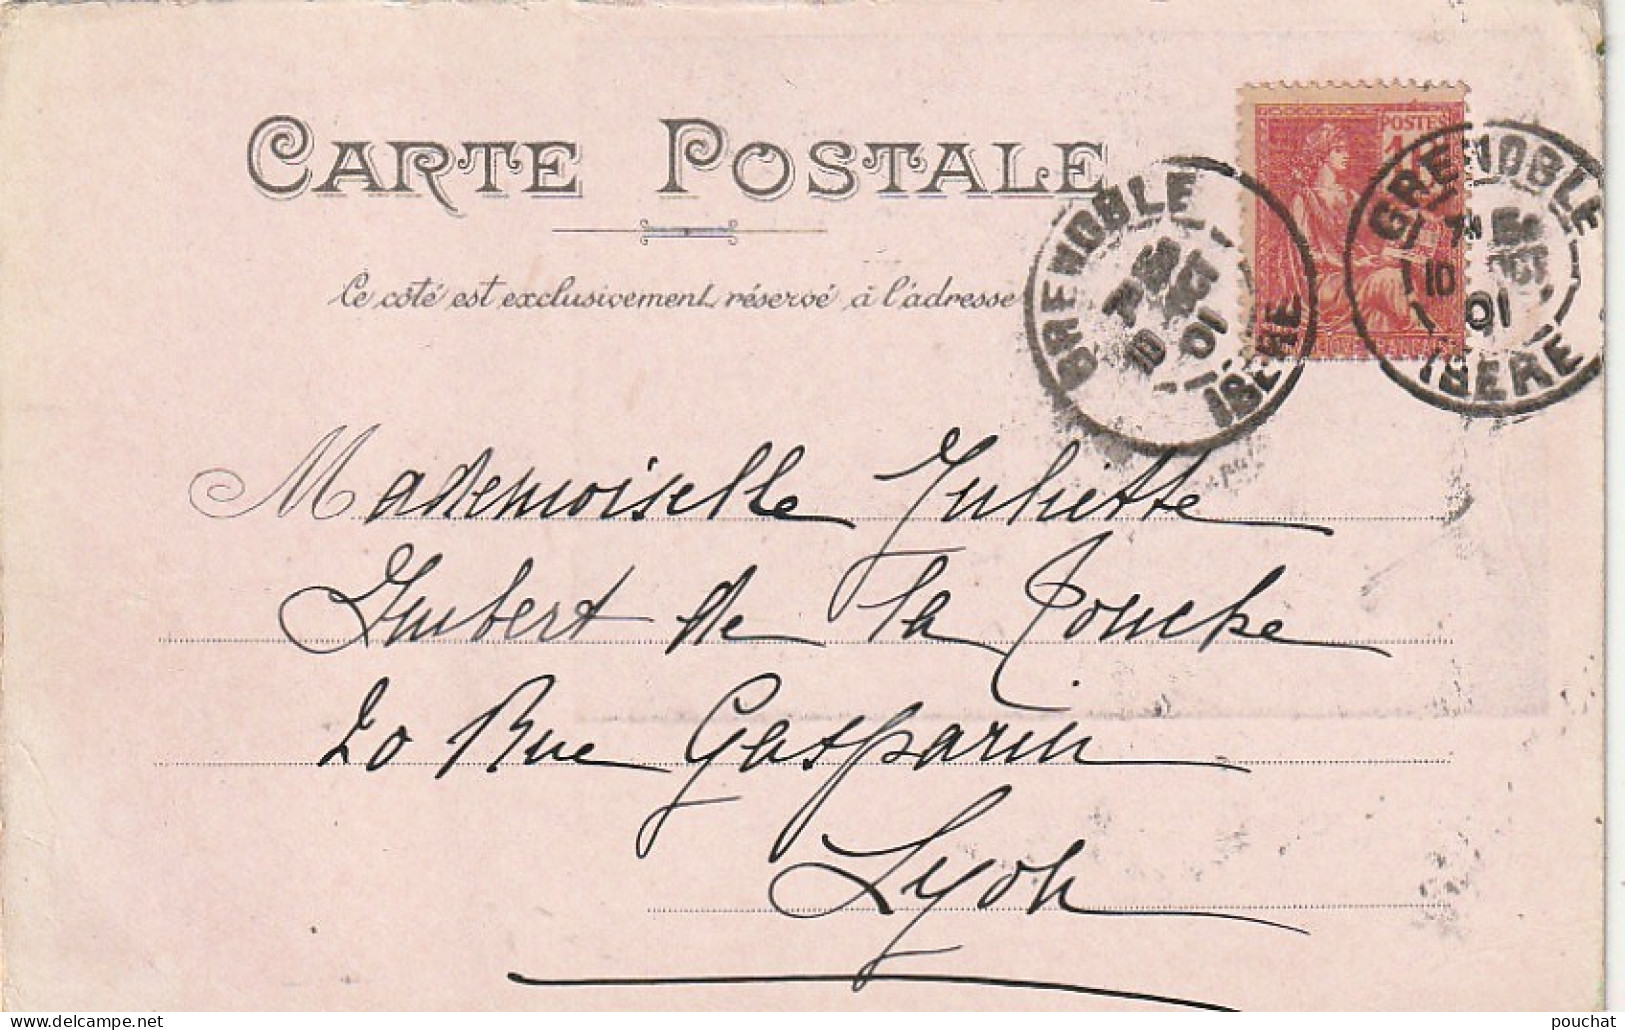 CARTE POSTALE
Ce côté est exclusivement réservé à l'adresse
POSTES
GRENOBLE
10 OCT 01
ISÈRE
GRENOBLE
10 OCT 01
ISÈRE
Mademoiselle Juliette
Imbert de la Touche
20 Rue Gasparin
Lyon
delcampe.net
pouchat